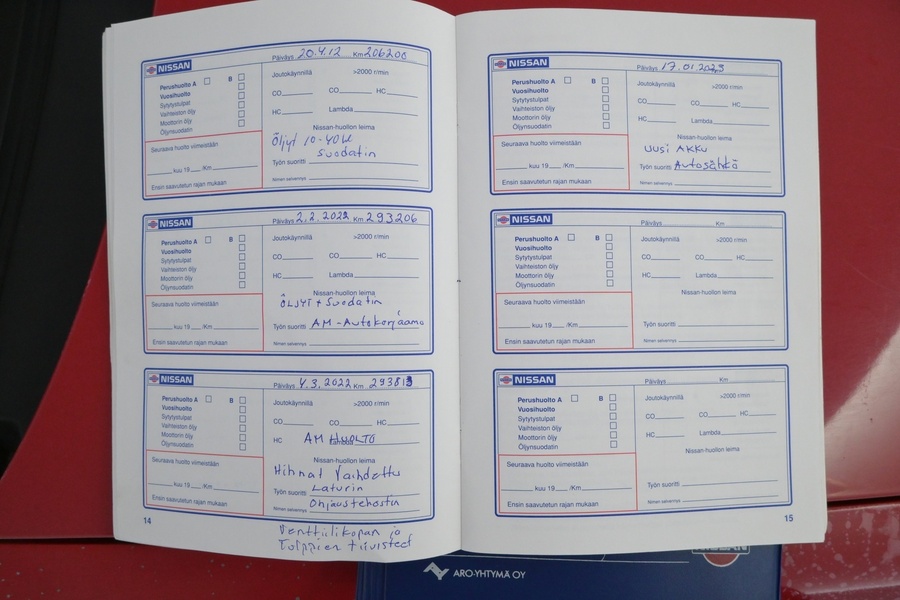 NISSAN
Päiväys 20.4.12 Km 206200
Perushuolto A B
Vuosihuolto
Sytytystulpat
Vaihteiston öljy
Moottorin öljy
Öljynsuodatin
Joutokäynnillä >2000 r/min
CO CO HC
HC Lambda
Nissan-huollon leima
Öljyt 10-40W
Suodatin
Työn suoritti
Nimen selvennys
Seuraava huolto viimeistään
kuu 19 /Km
Ensin saavutetun rajan mukaan
NISSAN
Päiväys 2.2.2022 Km 293206
Perushuolto A B
Vuosihuolto
Sytytystulpat
Vaihteiston öljy
Moottorin öljy
Öljynsuodatin
Joutokäynnillä >2000 r/min
CO CO HC
HC Lambda
Nissan-huollon leima
ÖLJYT + Suodatin
Työn suoritti AM-Autokorjaamo
Nimen selvennys
Seuraava huolto viimeistään
kuu 19 /Km
Ensin saavutetun rajan mukaan
NISSAN
Päiväys 4.3.2022 Km 293813
Perushuolto A B
Vuosihuolto
Sytytystulpat
Vaihteiston öljy
Moottorin öljy
Öljynsuodatin
Joutokäynnillä >2000 r/min
CO CO HC
HC AM HUOLTO
Nissan-huollon leima
Hihnat Vaihdettu
Työn suoritti Laturin
Nimen selvennys Ohjaustehostin
Seuraava huolto viimeistään
kuu 19 /Km
Ensin saavutetun rajan mukaan
Venttiilikopan ja
Tulppien tiivisteet
14
NISSAN
Päiväys 17.01.2023
Perushuolto A B
Vuosihuolto
Sytytystulpat
Vaihteiston öljy
Moottorin öljy
Öljynsuodatin
Joutokäynnillä >2000 r/min
CO CO HC
HC Lambda
Nissan-huollon leima
UUSI AKKU
Työn suoritti Autosähkö
Nimen selvennys
Seuraava huolto viimeistään
kuu 19 /Km
Ensin saavutetun rajan mukaan
NISSAN
Päiväys Km
Perushuolto A B
Vuosihuolto
Sytytystulpat
Vaihteiston öljy
Moottorin öljy
Öljynsuodatin
Joutokäynnillä >2000 r/min
CO CO HC
HC Lambda
Nissan-huollon leima
Työn suoritti
Nimen selvennys
Seuraava huolto viimeistään
kuu 19 /Km
Ensin saavutetun rajan mukaan
NISSAN
Päiväys Km
Perushuolto A B
Vuosihuolto
Sytytystulpat
Vaihteiston öljy
Moottorin öljy
Öljynsuodatin
Joutokäynnillä >2000 r/min
CO CO HC
HC Lambda
Nissan-huollon leima
Työn suoritti
Nimen selvennys
Seuraava huolto viimeistään
kuu 19 /Km
Ensin saavutetun rajan mukaan
15
ARO-YHTYMÄ OY
NISSAN